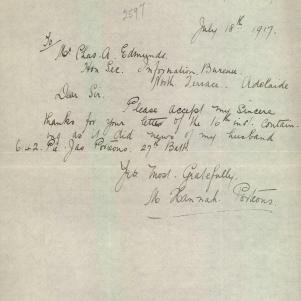 2597
July 18th 1917.
To
Mr Chas. A. Edmunds.
Hon Sec. Information Bureau.
North Terrace. Adelaide
Dear Sir.
Please accept my Sincere
thanks for your letter of the 16th inst. Contain-
ing as it did news of my husband
642. Pte. Jas Poisons. 27th Batt
Yrs Most Gratefully,
M Hannah. Poisons.